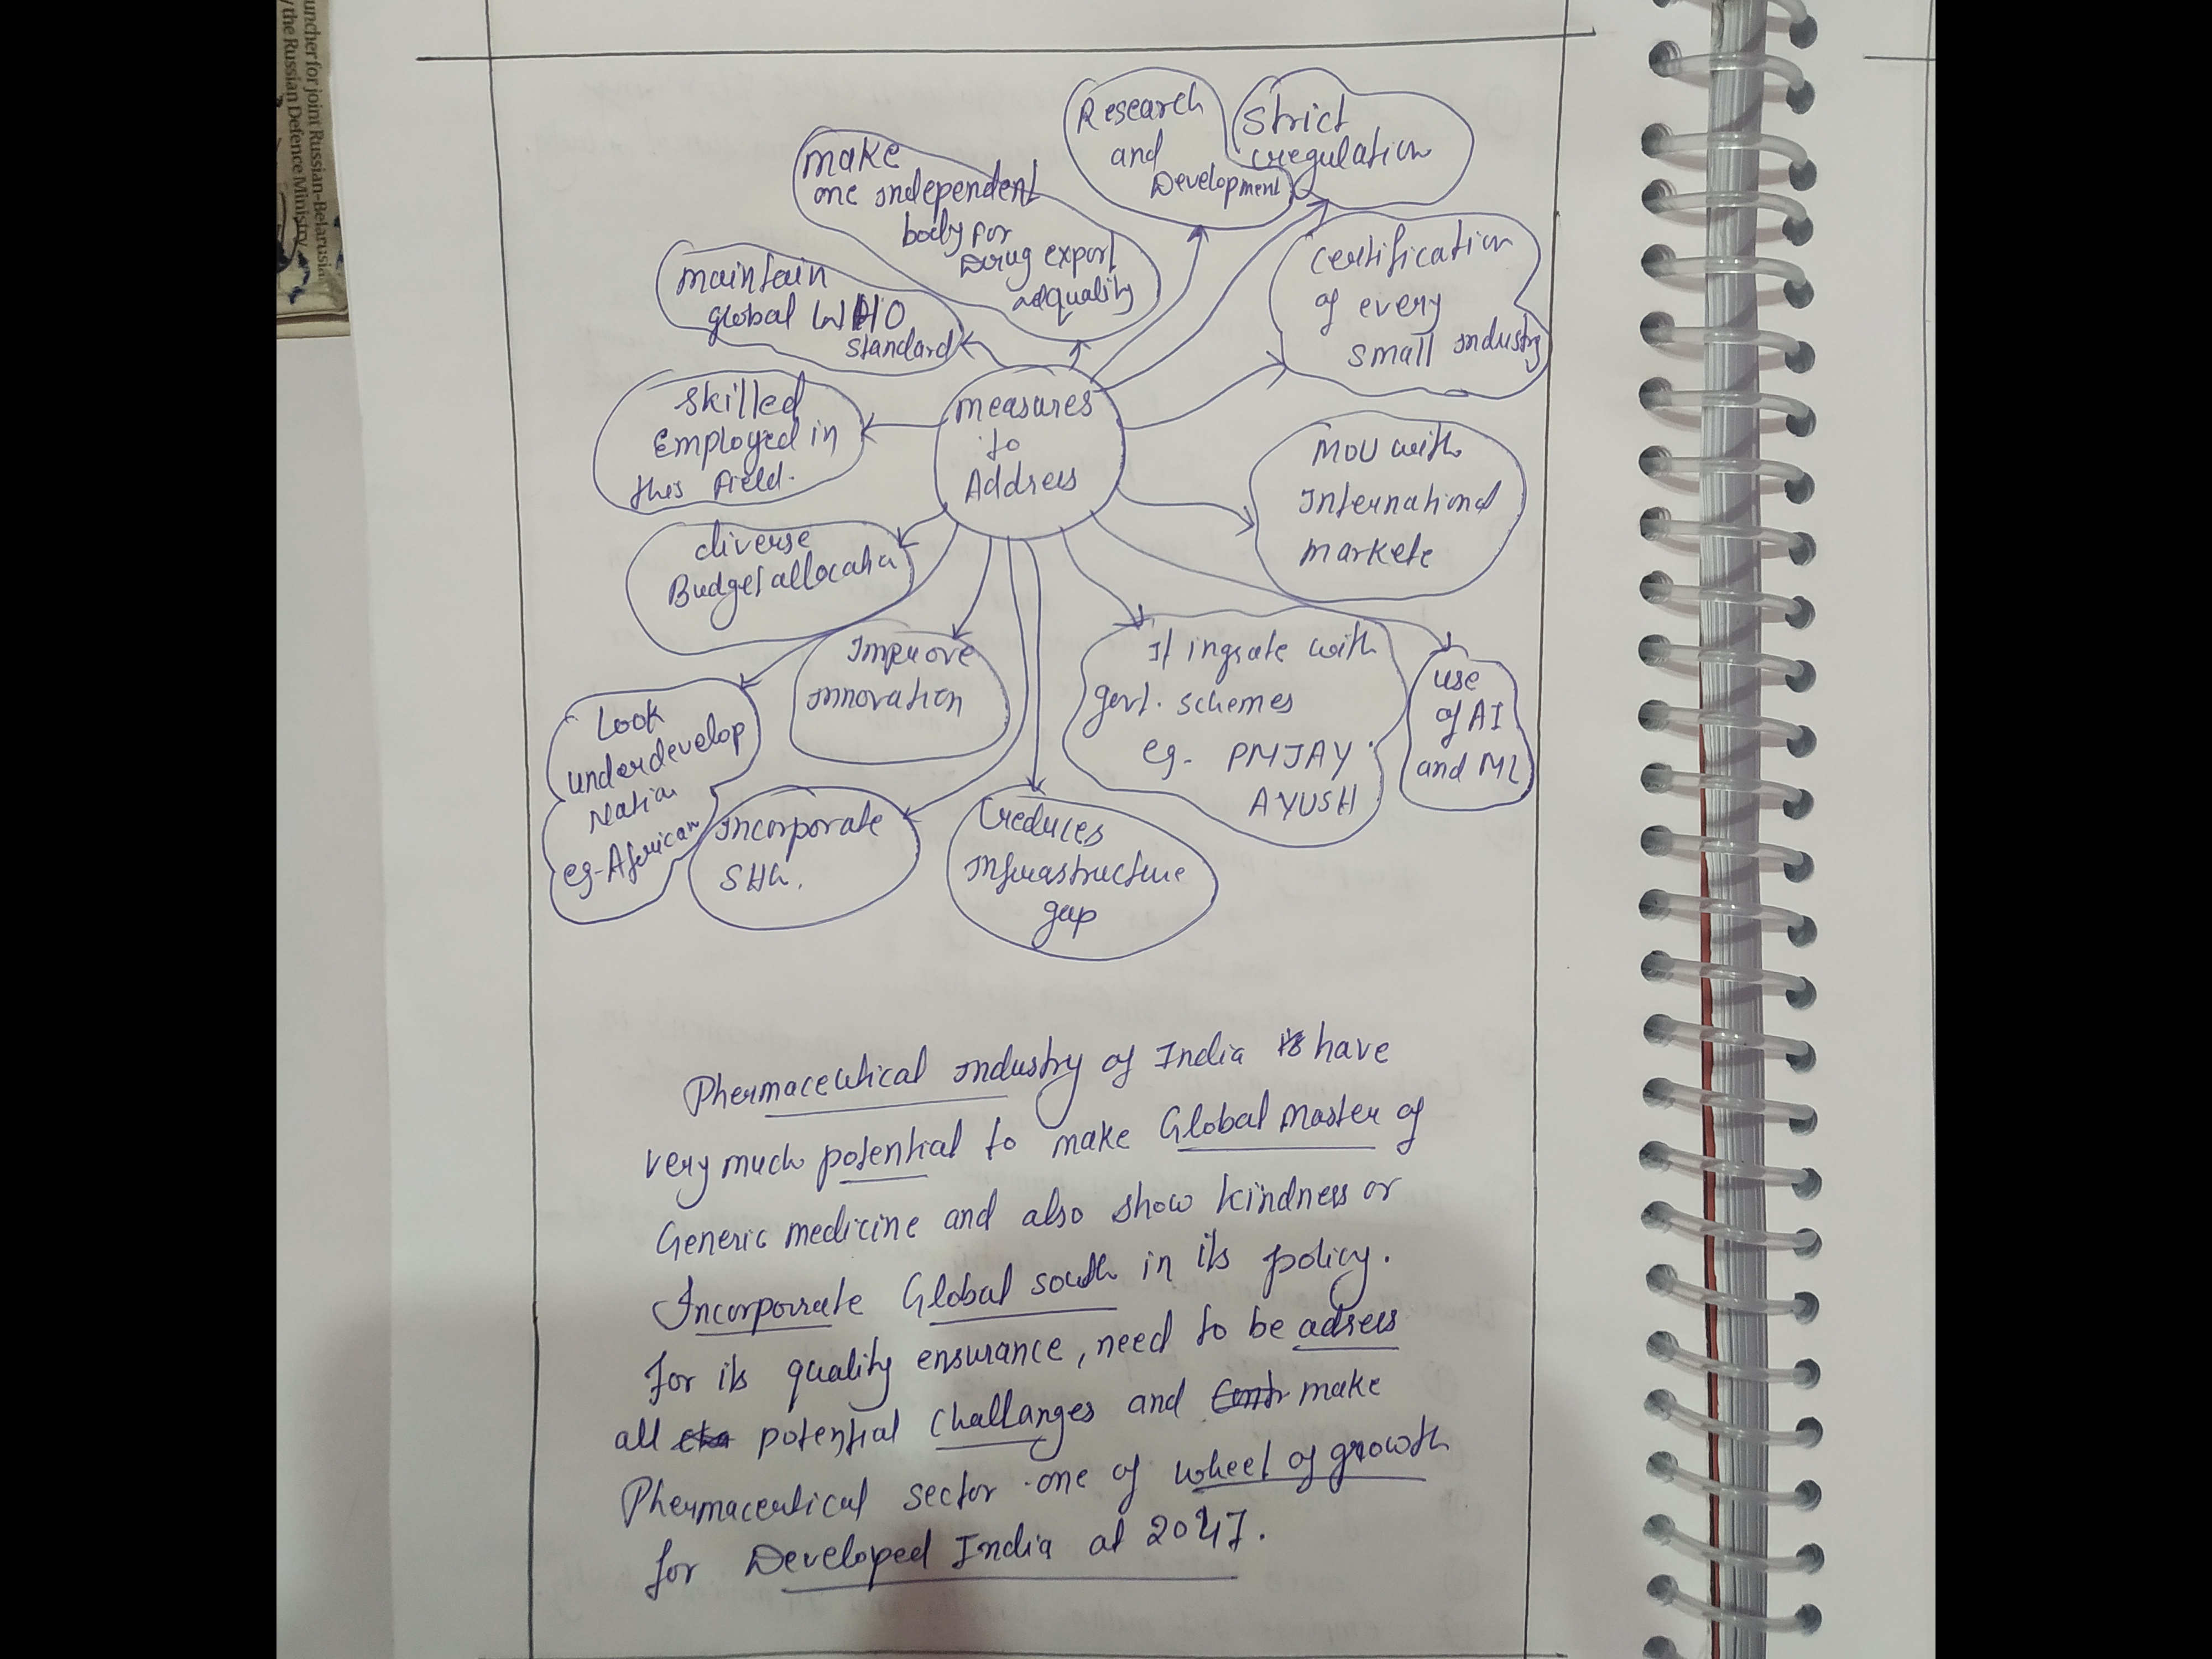 uncher for joint Russian-Belarusia
the Russian Defence Ministry
Research
and
Development
Strict
regulation
make
one independent
body for
Drug export
adquality
maintain
global WHO
standard
certification
of every
small industry
skilled
Employed in
this field.
measures
to
Address
MOU with
International
markete
diverse
Budget allocatin
Improve
innovation
It ingrate with
govt. schemes
eg. PMJAY
AYUSH
use
of AI
and ML
Look
underdevelop
Natin
eg-African
Incorporate
SHG.
reduces
infrastructure
gap
Phermaceutical industry of India is have
very much potential to make Global Master of
Generic medicine and also show kindness or
Incorporrate Global south in its policy.
For its quality ensurance, need to be adress
all cha potential challanges and make
Phermaceutical sector one of wheel of growth
for Developed India at 2047.